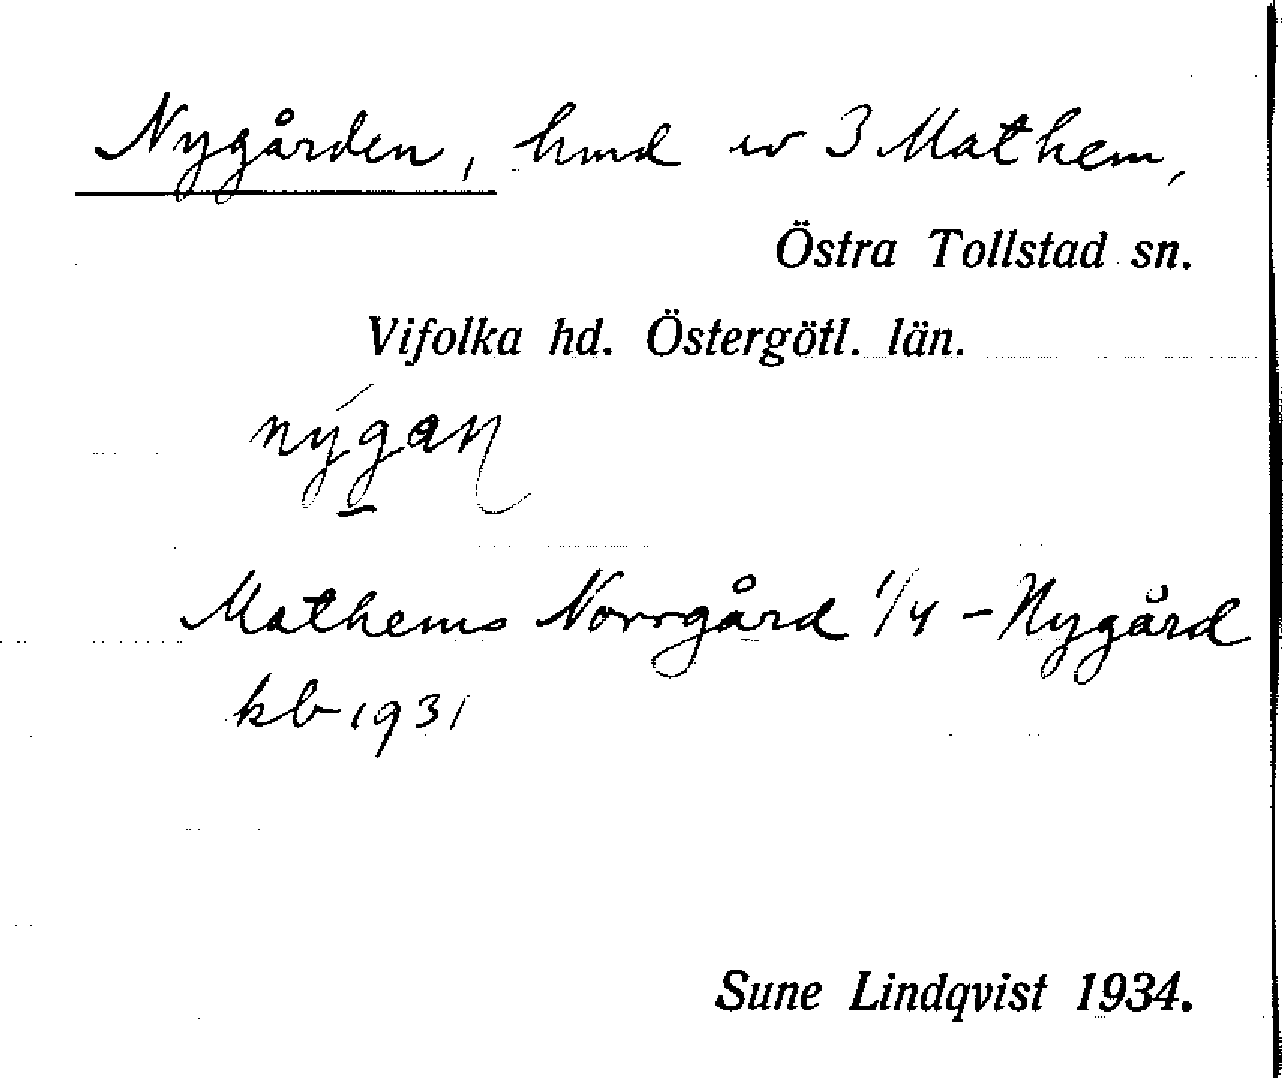 Nygården, hmd av 3 Mathem,
Östra Tollstad sn.
Vifolka hd. Östergötl. län.
Mathems Norrgård 1/4 - Nygård
kb 1931
Sune Lindqvist 1934.